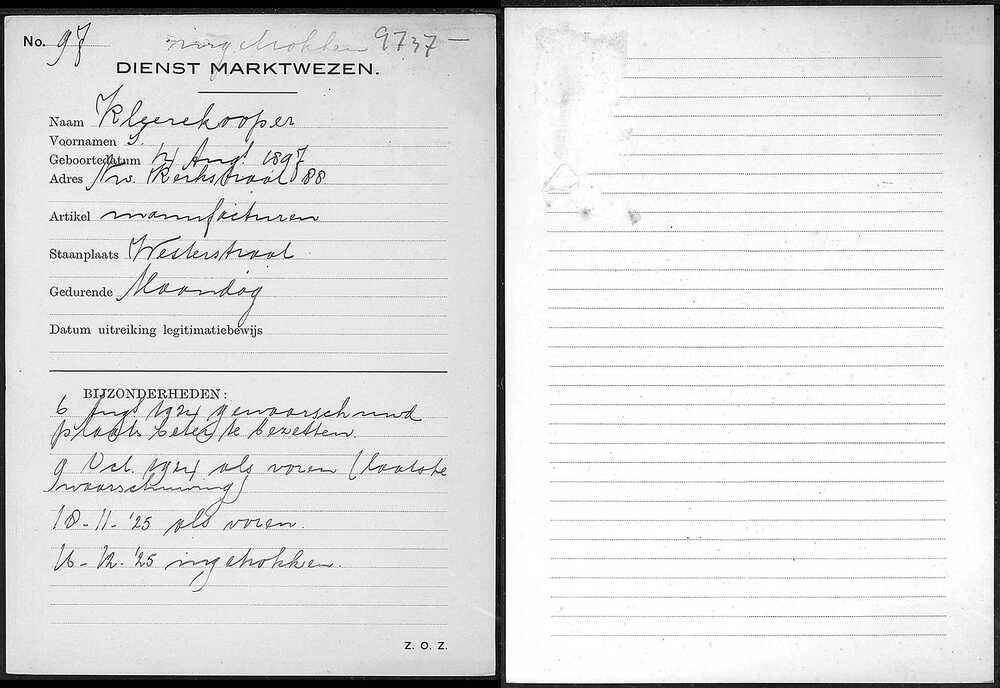 No. 97 ingetrokken 9737 —
DIENST MARKTWEZEN.
Naam Klyerekooper
Voornamen S.
Geboortedatum 14 Augt 1897
Adres Nw. Kerkstraat 88
Artikel manufacturen
Staanplaats Westerstraat
Gedurende Maandag
Datum uitreiking legitimatiebewijs
BIJZONDERHEDEN:
6 Augt 1924 gewaarschuwd
plaats beter te bezetten.
9 Oct. 1924 als voren (laatste
waarschuwing)
18-11-'25 als voren.
16-12-'25 ingetrokken.
Z. O. Z.